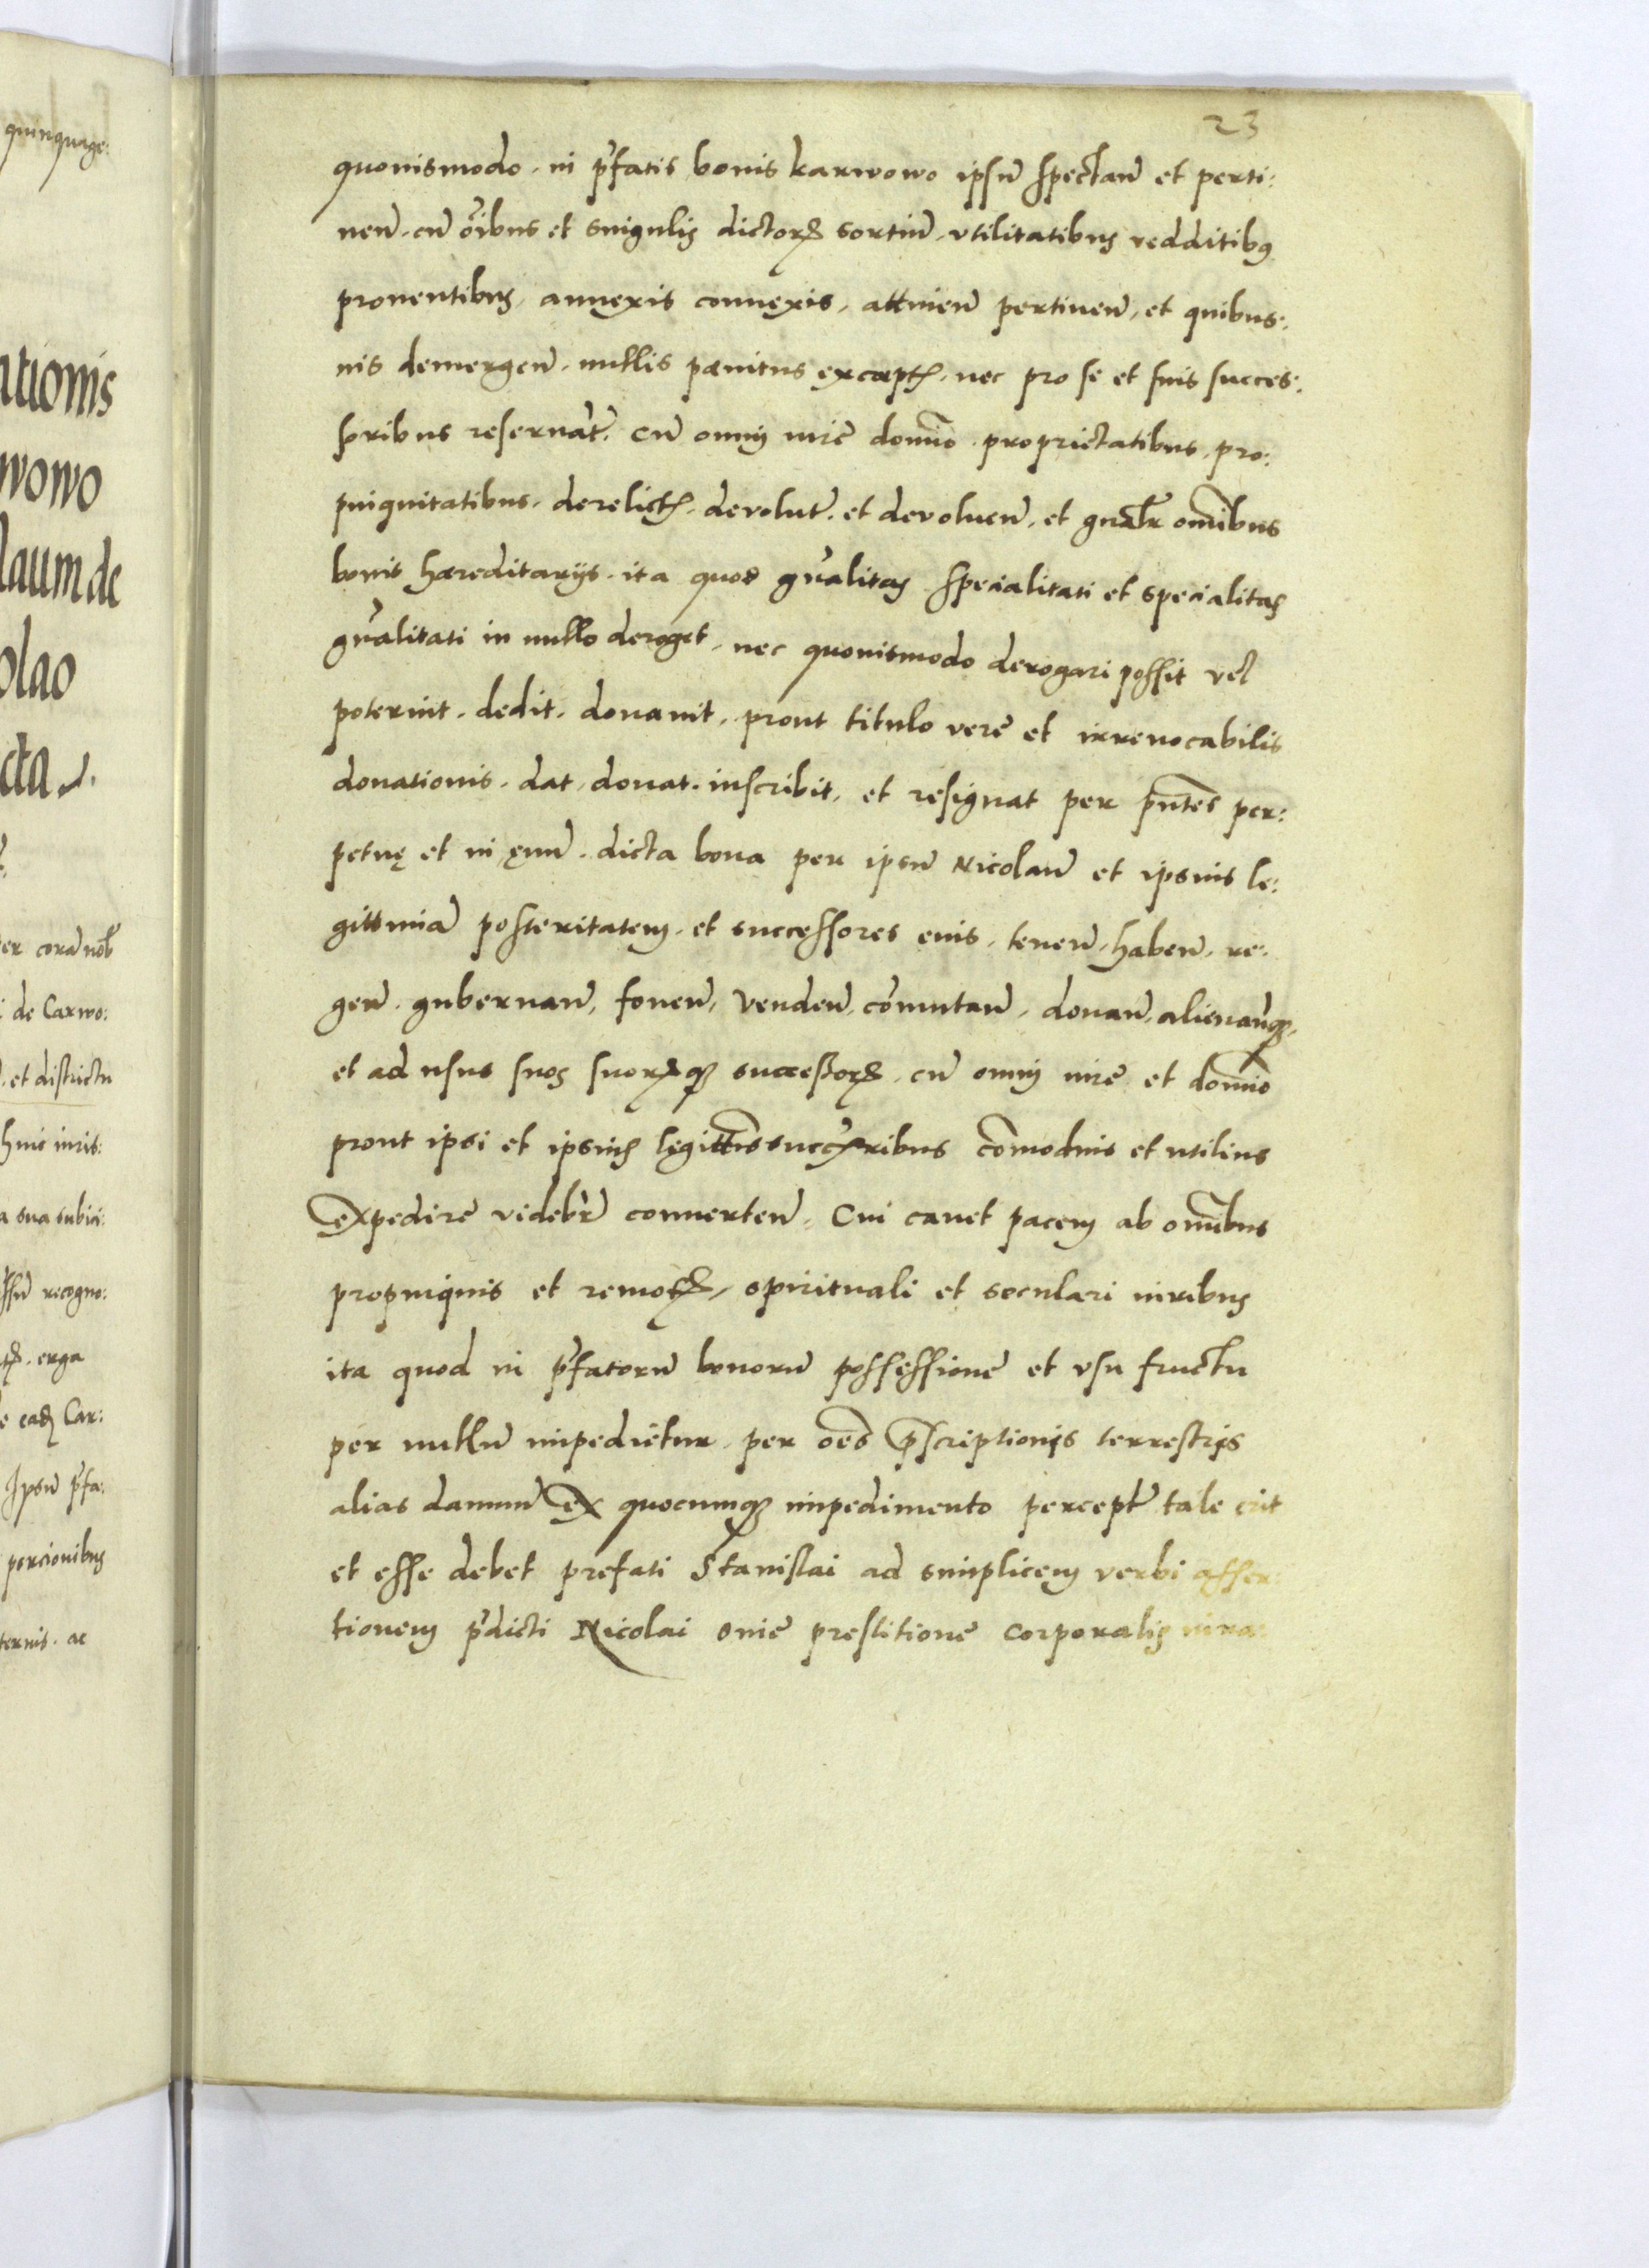 quinquage:
ationis
wowo
laum de
olao
cta
er corã nob
de Carwo:
et districtu
huic iuris:
a sua subici:
recogno:
erga
Car:
Ipsũ p̃fa:
porcionibus
ternis. ac
23
quouismodo. in p̃fatis bonis karwowo ipsũ spectañ et perti:
neñ. cũ oĩbus et singulis dictorꝝ sortiũ. vtilitatibus redditibꝰ
prouentibus, annexis connexis, attineñ pertineñ, et quibus:
uis demergeñ. nullis pænitus exceptꝭ. nec pro se et suis succes:
soribus reseruat̃. Cũ omni iure domĩo. proprietatibus. pro:
pinquitatibus. derelictꝭ. devolut̃. et devolueñ. et gñalr̃ omĩbus
bonis hæreditarijs. ita quod gñalitas specialitati et specialitas
gñalitati in nullo deroget. nec quouismodo derogari possit vel
poterint. dedit. donauit. prout titulo vere et irreuocabilis
donationis. dat, donat. inscribit. et resignat per p̃ntes per:
petuę et in ęuũ. dicta bona per ipsũ Nicolaũ et ipsius le:
gittimã posteritatem. et successores eius. teneñ, habeñ. re:
geñ. gubernañ, foueñ, Vendeñ, cõmutañ, donañ, alienañqꝫ.
et ad usus suos suorꝝqꝫ successorꝝ. cũ omni iure et domĩo
prout ipsi et ipsius legittĩs succꝭoribus cõmodius et utilius
expedire videbr̃ conuerteñ. Cui cauet pacem ab omĩbus
propinquis et remotꝭ, spirituali et seculari iuribus
ita quod in p̃fatorũ bonorũ possessione et vsu fructu
per nullũ impedietur. per oẽs p̃scriptionis terrestris
alias damnũ ex quocumqꝫ impedimento percept̃ tale erit
et esse debet prefati Stanislai ad simplicem verbi asser:
tionem p̃dicti Nicolai sine prestitione corporalis iura: